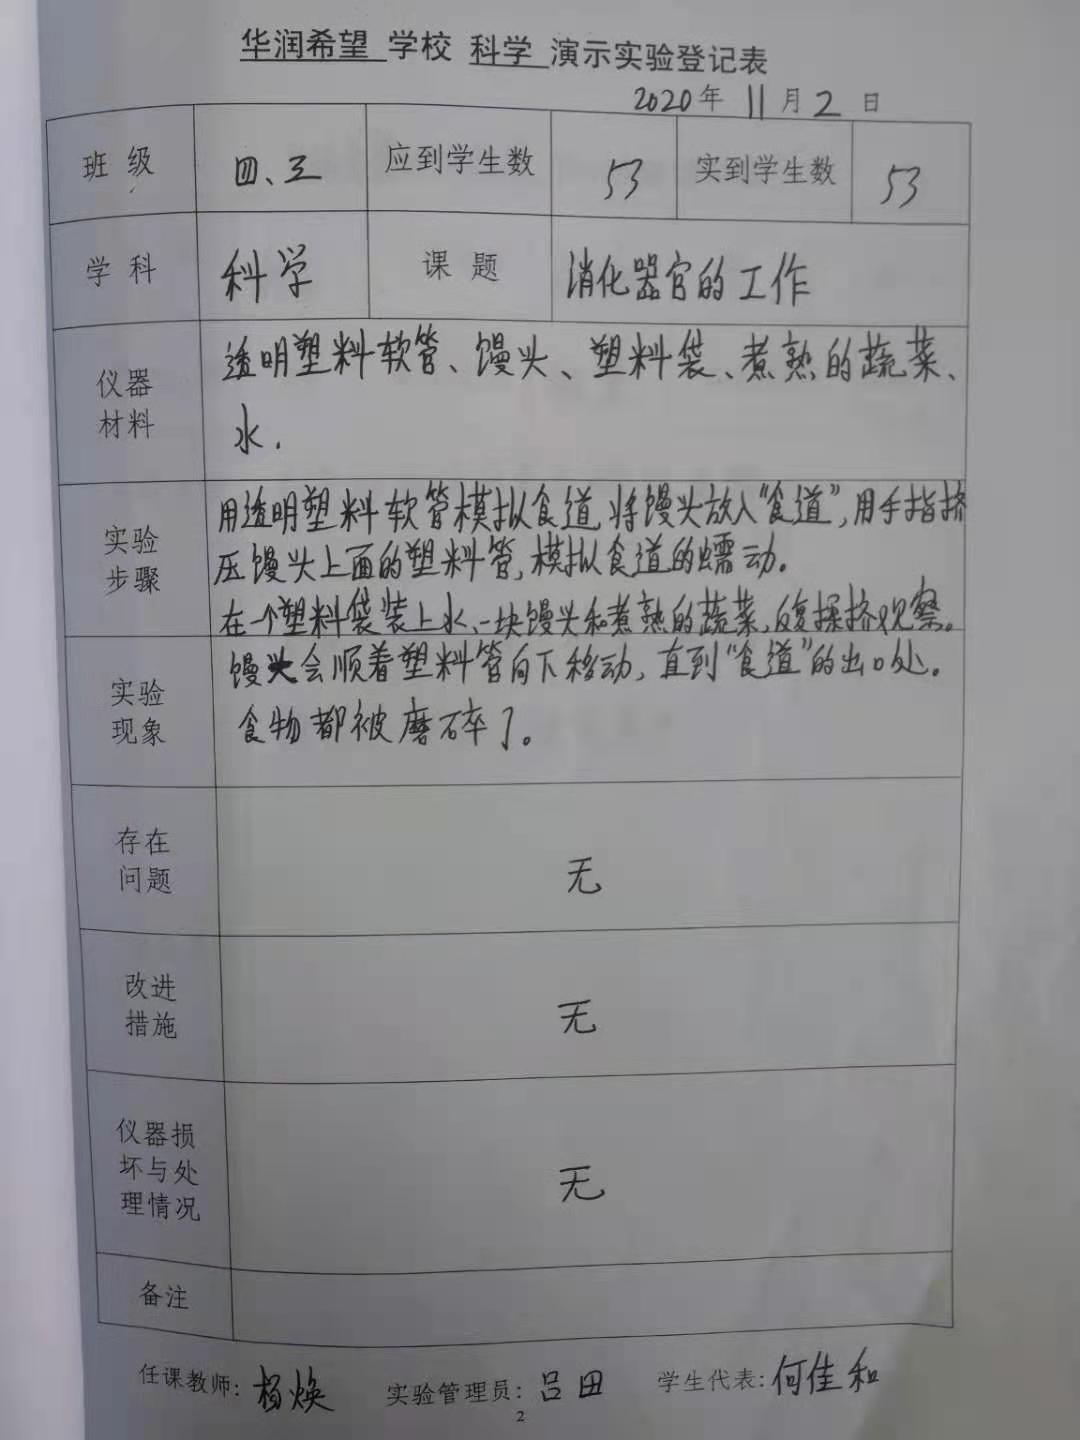 华润希望 学校 科学 演示实验登记表
2020年 11月 2 日
班 级 四、三 应到学生数 53 实到学生数 53
学 科 科学 课 题 消化器官的工作
仪器材料
透明塑料软管、馒头、塑料袋、煮熟的蔬菜、
水.
实验步骤
用透明塑料软管模拟食道,将馒头放入“食道”,用手指挤
压馒头上面的塑料管,模拟食道的蠕动.
在一个塑料袋装上水、一块馒头和煮熟的蔬菜,反复揉挤,观察。
实验现象
馒头会顺着塑料管向下移动,直到“食道”的出口处。
食物都被磨碎了。
存在问题
无
改进措施
无
仪器损坏与处理情况
无
备注
任课教师: 杨焕 实验管理员: 吕田 学生代表: 何佳和
2